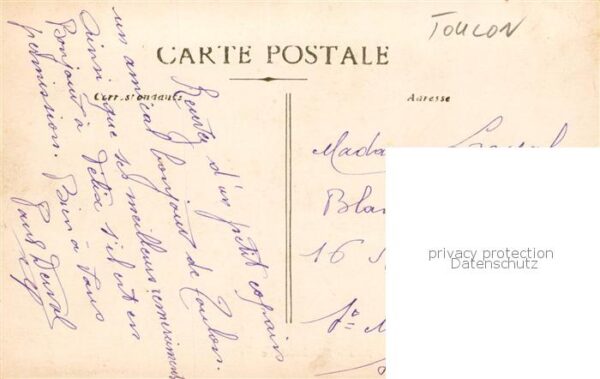 TOULON
CARTE POSTALE
Correspondance
Adresse
Recevez d'un petit copain
un amical bonjour de Toulon.
Ainsi que ses meilleurs remerciements
Bonjour à Délia s'il est en
permission. Bien à tous
Paul Derval
Mada
Blan
16
privacy protection
Datenschutz